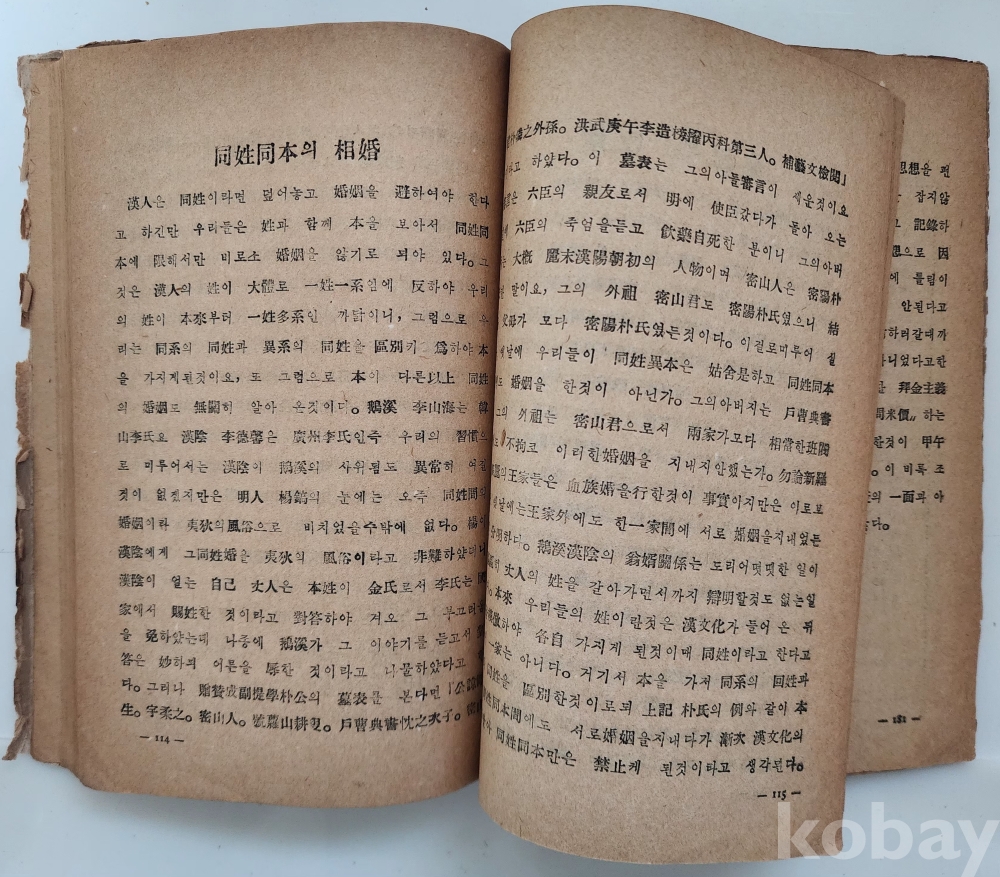 同姓同本의 相婚
漢人은 同姓이라면 덮어놓고 婚姻을 避하여야 한다
고 하진만 우리들은 姓과 함께 本을 보아서 同姓同
本에 限해서만 비로소 婚姻을 않기로 되야 있다。그
것은 漢人의 姓이 大體로 一姓一系임에 反하야 우리
의 姓이 本來부터 一姓多系인 까닭이니, 그럼으로 우
리는 同系의 同姓과 異系의 同姓을 區別키 爲하야 本
을 가지게된것이요, 또 그럼으로 本이 다른以上 同姓
의 婚姻도 無關히 알아 온것이다。鵝溪 李山海는 韓
山李氏요 漢陰 李德馨은 廣州李氏인즉 우리의 習慣으
로 미루어서는 漢陰이 鵝溪의 사위됨도 異常히 여길
것이 없겠지만은 明人 楊鎬의 눈에는 오즉 同姓間의
婚姻이라 夷狄의風俗으로 비치었을수밖에 없다。楊이
漢陰에게 그同姓婚을 夷狄의 風俗이라고 非難하였더니
漢陰이 얼는 自己 丈人은 本姓이 金氏로서 李氏는 國
家에서 賜姓한 것이라고 對答하야 겨오 그 부끄러
을 免하얐는데 나중에 鵝溪가 그 이야기를 듣고서
答은 妙하되 어른을 辱한 것이라고 나물하았다고
다。그러나 贈贊成副提學朴公의 墓表를 본다면「公
生。字柔之。密山人。號蘿山耕叟。戶曹典書忱之次子。
— 114 —
之外孫。洪武庚午李造榜擢丙科第三人。補藝文檢閱」
하고 하았다。이 墓表는 그의아들審言이 세운것이요
은 六臣의 親友로서 明에 使臣갔다가 돌아 오는
에 六臣의 죽엄을듣고 飮藥自死한 분이니 그의아버
는 大槪 麗末漢陽朝初의 人物이며 密山人은 密陽朴
말이요, 그의 外祖 密山君도 密陽朴氏였으니 結
父母가 모다 密陽朴氏였든것이다。이걸로미루어 실
옛날에 우리들이 同姓異本은 姑舍是하고 同姓同本
도 婚姻을 한것이 아닌가。그의아버지는 戶曹典書
그의 外祖는 密山君으로서 兩家가모다 相當한班閥
不拘코 이러한婚姻을 지내지안했는가。勿論新羅
王家들은 血族婚을行한것이 事實이지만은 이로보
날에는王家外에도 한一家間에 서로 婚姻을지내었든
分明하다。鵝溪漢陰의 翁婿關係는 도리어떳떳한 일이
丈人의 姓을 갈아가면서까지 辯明할것도 없는일
。本來 우리들의 姓이란것은 漢文化가 들어 온 뒤
倣하야 各自 가지게 된것이매 同姓이라고 한다고
一家는 아니다。거기서 本을 가저 同系의 同姓과
同姓을 區別한것이로되 上記 朴氏의 例와 같이 本
同本間에도 서로婚姻을지내다가 漸次 漢文化의
同姓同本만은 禁止케 된것이라고 생각된다。
— 115 —
思想을 펀
잡지않
記錄하
想으로 因
에 틀림이
안된다고
하러갈대까
니었다고한
拜金主義
同米價」하는
한것이 甲午
이 비록 조
의 一面과 아
다。
— 181 —
kobay